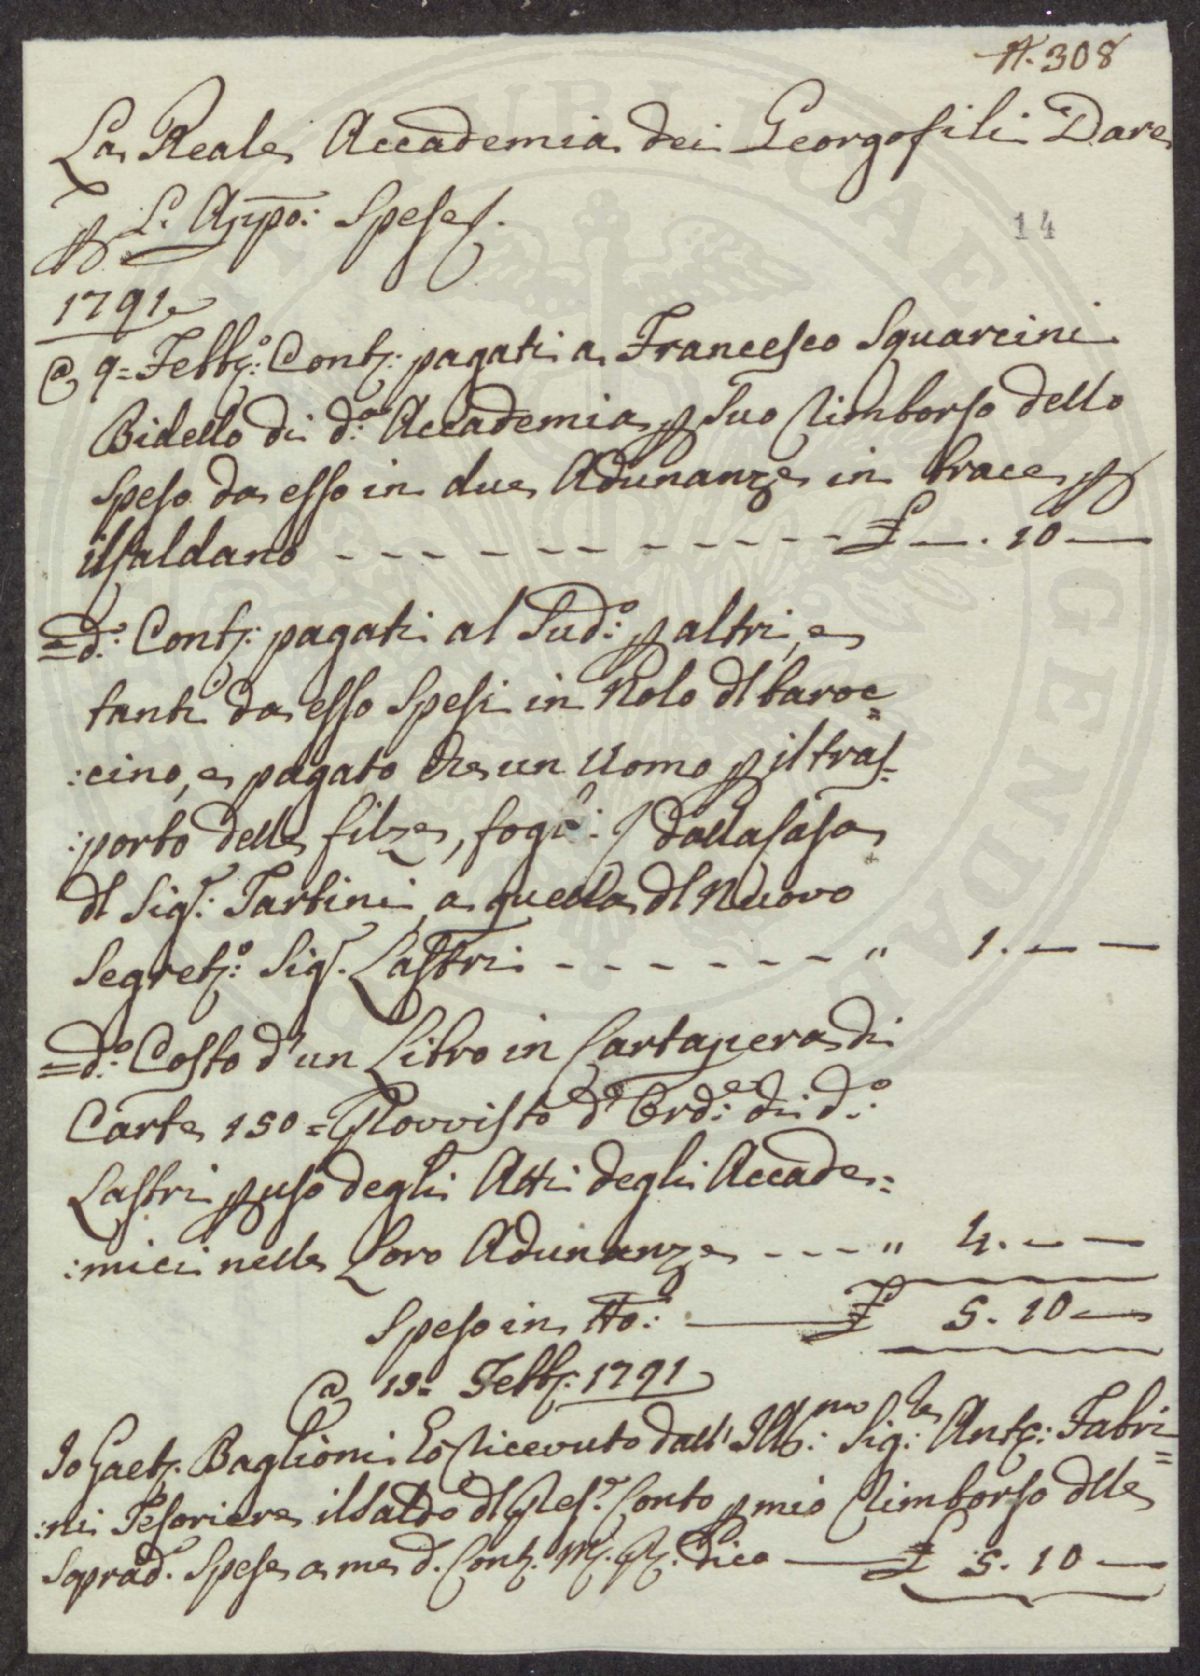 N. 308
La Reale Accademia dei Georgofili Dare
p L'Appo: Spese
14
1791
a 9= Febb: Cont: pagati a Francesco Squarcini
Bidello di d.a Accademia p suo rimborso dello
speso da esso in due Adunanze in brace p
il saldano £ —. 10 —
= d.o: Cont: pagati al Sud.o: p altri, e
tanti da esso spesi in Nolo dl baroc=
:cino, e pagato che un Uomo p il tras=
:porto delle filze, fogi: / dalla Casa
dl Sig.: Tartini a quella dl Nuovo
Segret.o: Sig. Lastri " 1. — —
= d.o: Costo d'un Libro in Cartapera di
Carte 150= Provvisto d' Ord.e: di d.o:
Lastri p uso degli Atti degli Accade=
:mici nelle Loro Adunanze " 4. — —
Speso in tto: £ 5. 10 —
a 19= Febb: 1791
Io Gaet. Baglioni Ho ricevuto dall' Ill.mo: Sig.re: Ant: Fabri=
:ni Tesoriere il saldo dl Pres.e Conto p mio rimborso dlle
Soprad. Spese a me d. Cont. M. P. Dico £ 5. 10 —
UBLICAE
GENDAE